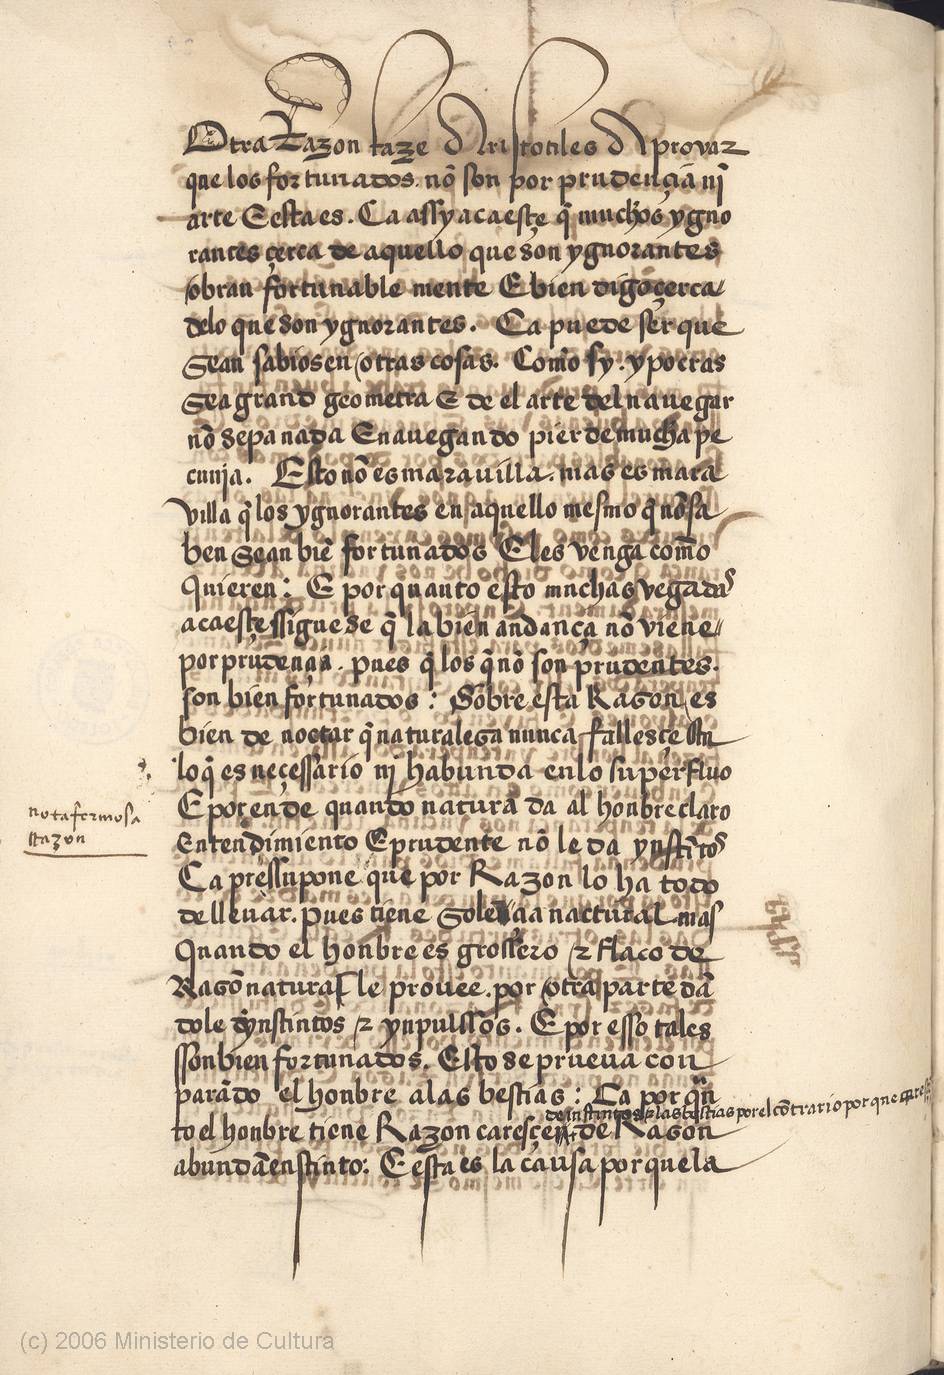 Otra Razon faze Aristotiles A provar
que los fortunados. nõ son por prudençia nj̃
arte E esta es. Ca assy acaesçe q̃ muchos ygno
rantes çerca de aquello que son ygnorantes
obran fortunable mente E bien digo çerca
delo que son ygnorantes. Ca puede ser que
Sean sabios en otras cosas. Como sy. ypocras
Sea grand geometra E de el arte del navegar
nõ sepa nada E navegando pierde mucha pe
cunja. Esto nõ es maravilla. mas es mara
villa q̃ los ygnorantes en aquello mesmo q̃ nõ sa
ben Sean biẽ fortunados E les venga como
quieren: E por quanto esto muchas vegadas
acaesçe ssiguese q̃ la bien andança nõ viene
por prudençia. pues q̃ los q̃ nõ son prudentes.
son bien fortunados: Sobre esta Razon es
bien de notar q̃ naturaleza nunca fallesçe en
lo q̃ es necessario nj habunda en lo superfluo
nota fermosa
rrazon
E por ende quando natura da al honbre claro
Entendimiento E prudente nõ le da ynstĩtos
Ca pressupone que por Razon lo ha todo
de llevar. pues tiene natural mas
Quando el honbre es grossero τ flaco de
Razõ natural le provee. por otra parte dã
dole ynstintos τ ynpulssos. E por esso tales
sson bien fortunados. Esto se prueva con
parãdo el honbre a las bestias: Ca por qũ
de instintos τ las bestias por el cõtrario por que
to el honbre tiene Razon caresçe de Razon
abundã en stinto: E esta es la causa por que la
(c) 2006 Ministerio de Cultura